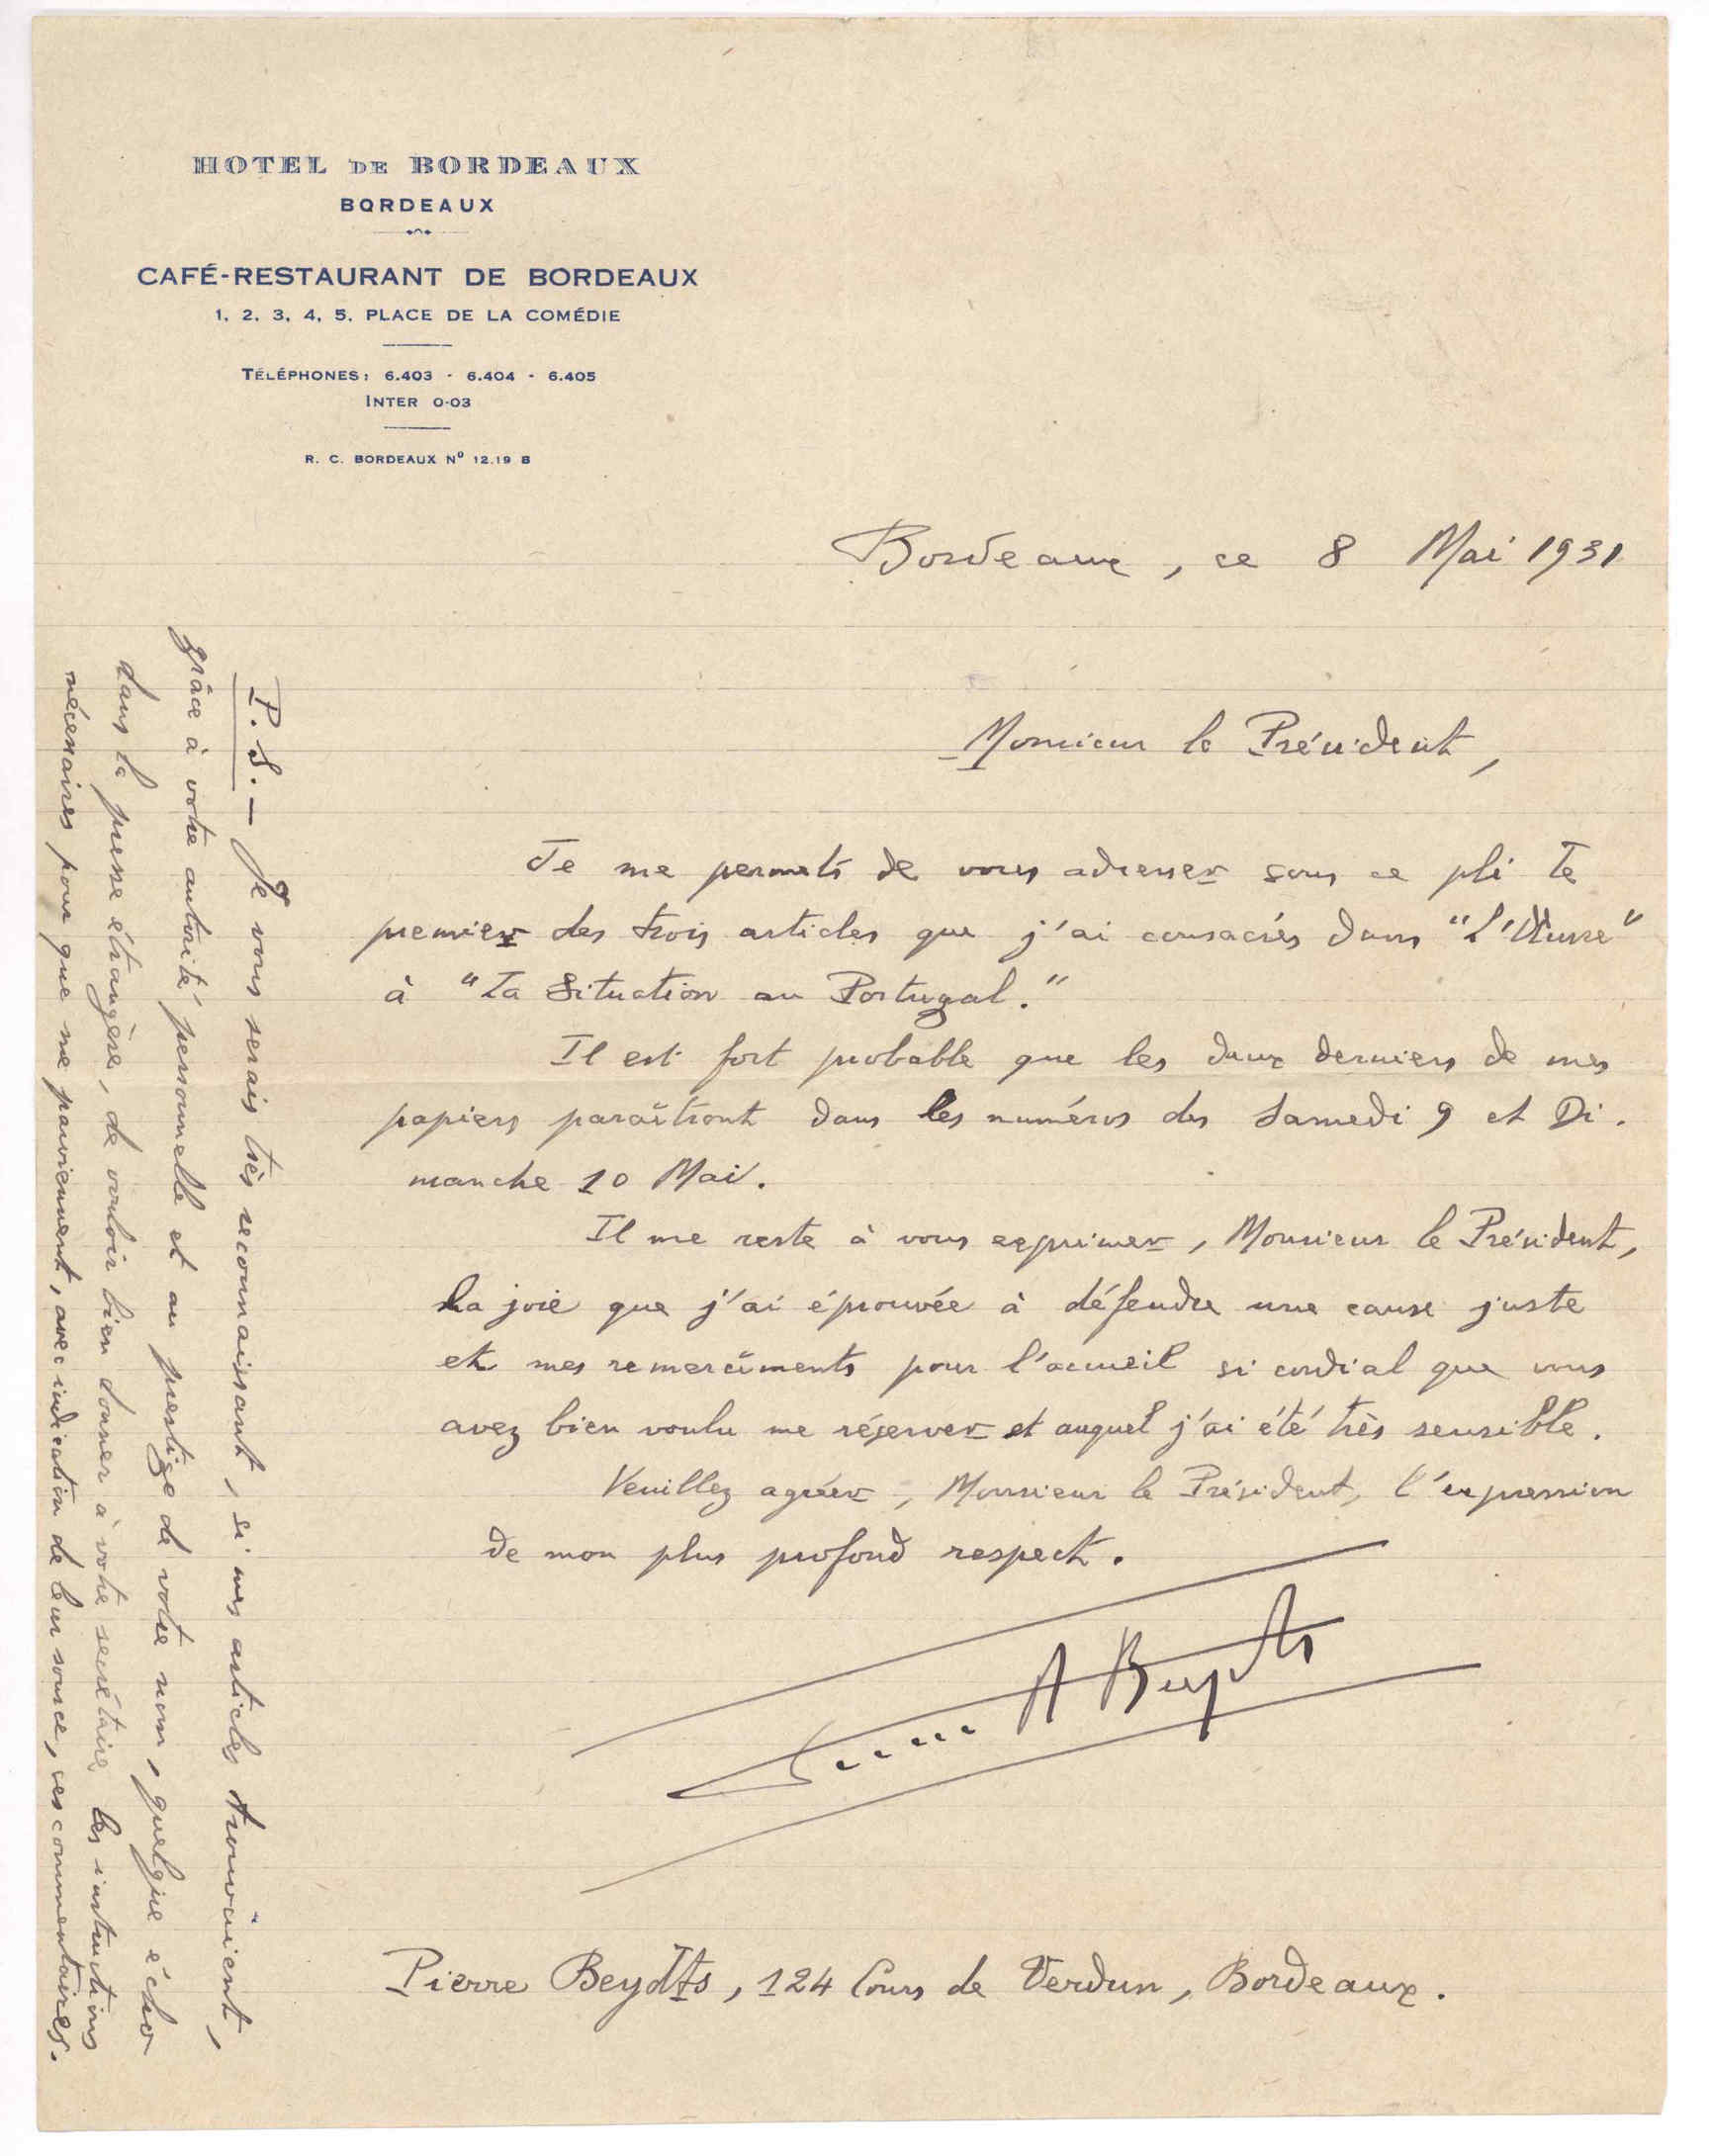 HOTEL DE BORDEAUX
BORDEAUX
CAFÉ-RESTAURANT DE BORDEAUX
1, 2, 3, 4, 5, PLACE DE LA COMÉDIE
TÉLÉPHONES: 6.403 - 6.404 - 6.405
INTER 0-03
R. C. BORDEAUX Nº 12.19 B
Bordeaux, ce 8 Mai 1931
Monsieur le Président,
Je me permets de vous adresser sous ce pli le
premier des trois articles que j'ai consacrés dans "L'Œuvre"
à "La Situation au Portugal."
Il est fort probable que les deux derniers de mes
papiers paraîtront dans les numéros des Samedi 9 et Di.
manche 10 Mai.
Il me reste à vous exprimer, Monsieur le Président,
la joie que j'ai éprouvée à défendre une cause juste
et mes remerciments pour l'accueil si cordial que vous
avez bien voulu me réserver et auquel j'ai été très sensible.
Veuillez agréer, Monsieur le Président, l'expression
de mon plus profond respect.
A Beydts
Pierre Beydts, 124 Cours de Verdun, Bordeaux.
P. S. — Je vous serais très reconnaissant, si mes articles trouvaient,
grâce à votre autorité personnelle et au prestige de votre nom, quelque écho
dans la presse étrangère, de vouloir bien donner à votre secrétaire les instructions
nécessaires pour que me parviennent, avec indication de leur source, ces commentaires.